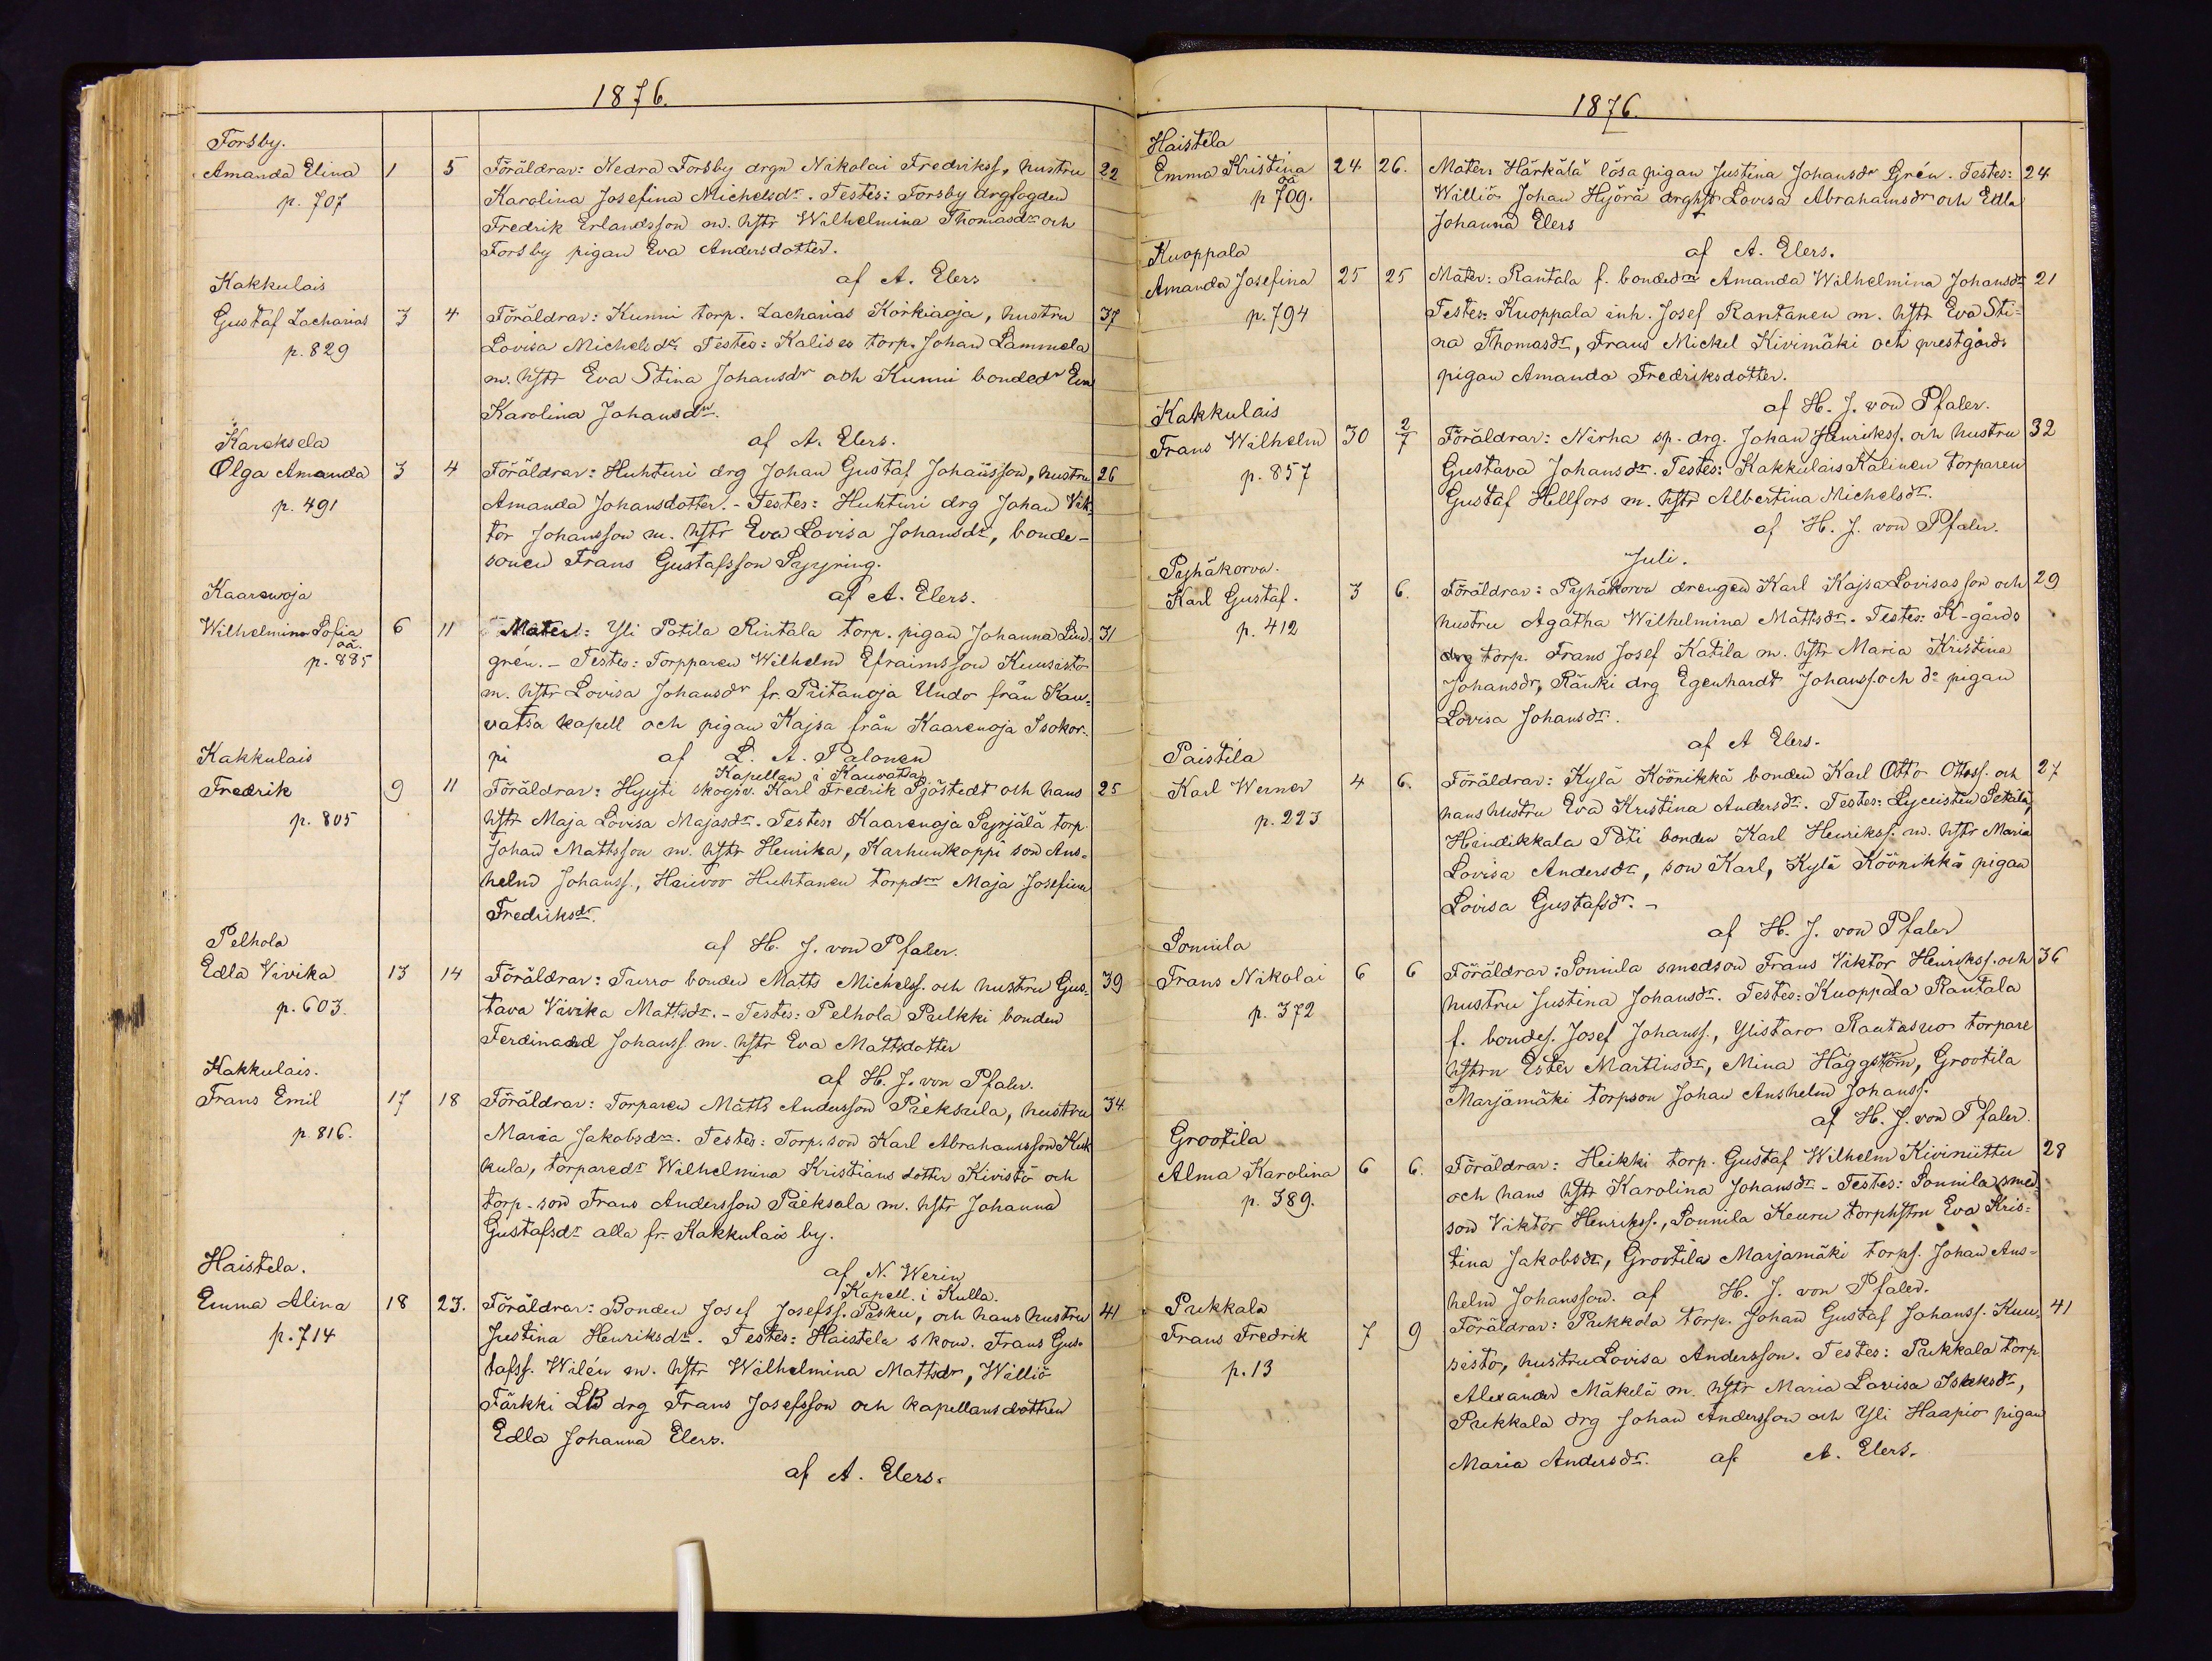 1876.
Forsby.
Amanda Elina 1 5 Föräldrar: Nedra Forsby drgn Nikolai Fredrikss., hustru 22
p. 707 Karolina Josefina Michelsdr. Testes: Forsby drgfogden
Fredrik Erlandsson m. hstr Wilhelmina Thomasdr och
Forsby pigan Eva Andersdotter.
Kakkulais af A. Elers
Gustaf Zacharias 3 4 Föräldrar: Kunni torp. Zacharias Korkiaoja, hustru 37
p. 829 Lovisa Michelsdr. Testes: Kalises torp. Johan Lammela
m. hstr Eva Stina Johansdr och Kunni bondedr Eva
Karolina Johansdr.
Kareksela af A. Elers.
Olga Amanda 3 4 Föräldrar: Huhturi drg Johan Gustaf Johansson, hustru 26
p. 491 Amanda Johansdotter. - Testes: Huhturi drg Johan Vik-
tor Johansson m. hstr Eva Lovisa Johansdr, bonde-
sonen Frans Gustafsson Pyyring.
Kaarenoja af A. Elers.
Wilhelmina Sofia 6 11 Mater: Yli Potila Rintala torp. pigan Johanna Lind- 31
oä.
p. 885 grén. - Testes: Torpparen Wilhelm Efraimsson Kuusisto
m. hstr Lovisa Johansdr fr. Piitanoja Undo från Kau-
vatsa kapell och pigan Kajsa från Kaarenoja Isokor-
Kakkulais pi af L. A. Palonen
Kapellan i Kauvatsa
Fredrik 9 11 Föräldrar: Hyyti skogsv. Karl Fredrik Sjöstedt och hans 25
p. 805 hstr Maja Lovisa Majasdr. Testes: Kaarenoja Pyrjälä torp.
Johan Mattsson m. hstr Henrika, Karhunkoppi son Ans-
helm Johanss., Haivoo Huhtanen torpdr Maja Josefina
Fredriksdr.
Pelhola af H. J. von Pfaler.
Edla Vivika 13 14 Föräldrar: Turro bonden Matts Michelss. och hustru Gus- 39
p. 603. tava Vivika Mattsdr. - Testes: Pelhola Pulkki bonden
Ferdinand Johanss. m. hstr Eva Mattsdotter
Kakkulais. af H. J. von Pfaler.
Frans Emil 17 18 Föräldrar: Torparen Matts Andersson Pieksula, hustru 34
p. 816. Maria Jakobsdr. Testes: Torp. son Karl Abrahamsson Kuk
kula, torparedr Wilhelmina Kristians dotter Kivistö och
torp. son Frans Andersson Pieksala m. hstr Johanna
Gustafsdr alla fr. Kakkulais by.
Haistela. af N. Werin
Kapell. i Kulla.
Emma Alina 18 23. Föräldrar: Bonden Josef Josefss. Pasku, och hans hustru 41
p. 714 Justina Henriksdr. Testes: Haistela skom. Frans Gus-
tafss. Wilén m. hstr Wilhelmina Mattsdr, Williö
Färkki LB drg Frans Josefsson och kapellansdottren
Edla Johanna Elers.
af A. Elers.
1876.
Haistela
Emma Kristina 24 26. Mater: Härkälä lösa pigan Justina Johansdr Grén. Testes: 24
oä
p 709. Williö Johan Hyörä drghst Lovisa Abrahamsdr och Edla
Johanna Elers
Kuoppala af A. Elers.
Amanda Josefina 25 25 Mater: Rantala f. bondedr Amanda Wilhelmina Johansdr 21
p. 794 Testes: Kuoppala inh. Josef Rantanen m. hstr Eva Sti-
na Thomasdr, Frans Mickel Kivimäki och prestgårds
pigan Amanda Fredriksdotter.
Kakkulais af H. J. von Pfaler.
Frans Wilhelm 30 2/7 Föräldrar: Närha sp. drg. Johan Henrikss. och hustru 32
p. 857 Gustava Johansdr. Testes: Kakkulais Kalinen torparen
Gustaf Hellfors m. hstr Albertina Michelsdr.
af H. J. von Pfaler.
Juli.
Pyhäkorva.
Karl Gustaf. 3 6. Föräldrar: Pyhäkorva drengen Karl Kajsa Lovisasson och 29
p. 412 hustru Agatha Wilhelmina Mattsdr. Testes: K-gårds
drg torp. Frans Josef Katila m. hstr Maria Kristina
Johansdr, Ränki drg Egenhardt Johanss. och do pigan
Lovisa Johansdr.
af A Elers.
Paistila
Karl Werner 4 6. Föräldrar: Kylä Köönikkä bonden Karl Otto Ottoss. och 27
p. 223 hans hustru Eva Kristina Andersdr. Testes: Lyceisten Setälä,
Hindikkala Pöti bonden Karl Henrikss. m. hstr Maria
Lovisa Andersdr, son Karl, Kylä Köönikkä pigan
Lovisa Gustafsdr. -
af H. J. von Pfaler
Sonnila
Frans Nikolai 6 6 Föräldrar: Sonnila smedson Frans Viktor Henrikss. och 36
p. 372 hustru Justina Johansdr. Testes: Kuoppala Rantala
f. bondes. Josef Johanss., Ylistaro Rautasuo torpare
hstrn Ester Martinsdr, Mina Häggström, Grootila
Marjamäki torpson Johan Anshelm Johanss.
af H. J. von Pfaler.
Grootila
Alma Karolina 6 6. Föräldrar: Heikki torp. Gustaf Wilhelm Kiviniittu 28
p. 389. och hans hstr Karolina Johansdr - Testes: Sonnila smed-
son Viktor Henrikss., Sonnila Keuru torphstrn Eva Kris-
tina Jakobsdr, Grootila Marjamäki torps. Johan Ans-
helm Johansson. af H. J. von Pfaler.
Pukkala
Frans Fredrik 7 9 Föräldrar: Pukkola torp. Johan Gustaf Johanss. Kuu- 41
p. 13 sisto, hustru Lovisa Andersson. Testes: Pukkala torp.
Alexander Mäkelä m. hstr Maria Lovisa Isaksdr,
Pukkala drg Johan Andersson och Yli Haapio pigan
Maria Andersdr. af A. Elers.